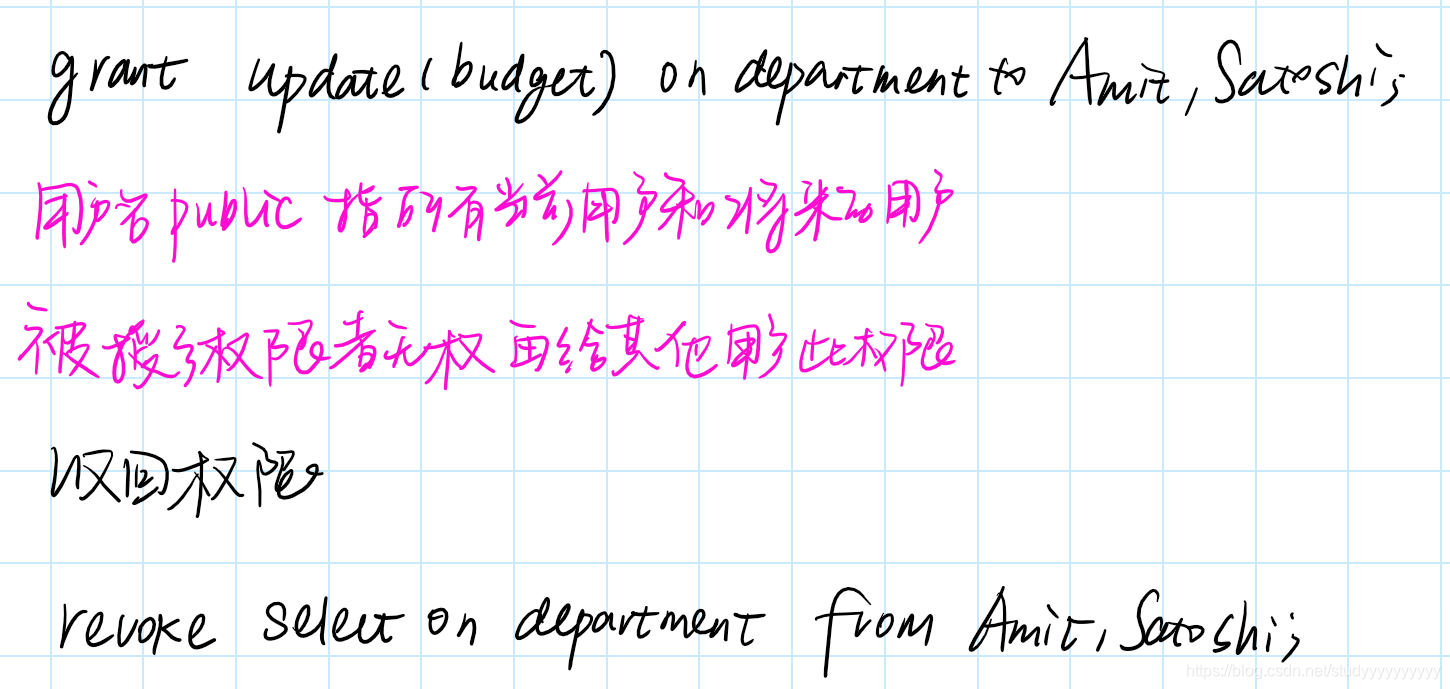 grant update(budget) on department to Amit, Satoshi;
用户名public 指所有当前用户和将来的用户
被授予权限者无权再给其他用户此权限
收回权限
revoke select on department from Amit, Satoshi;
https://blog.csdn.net/studyyyyyyyyyy